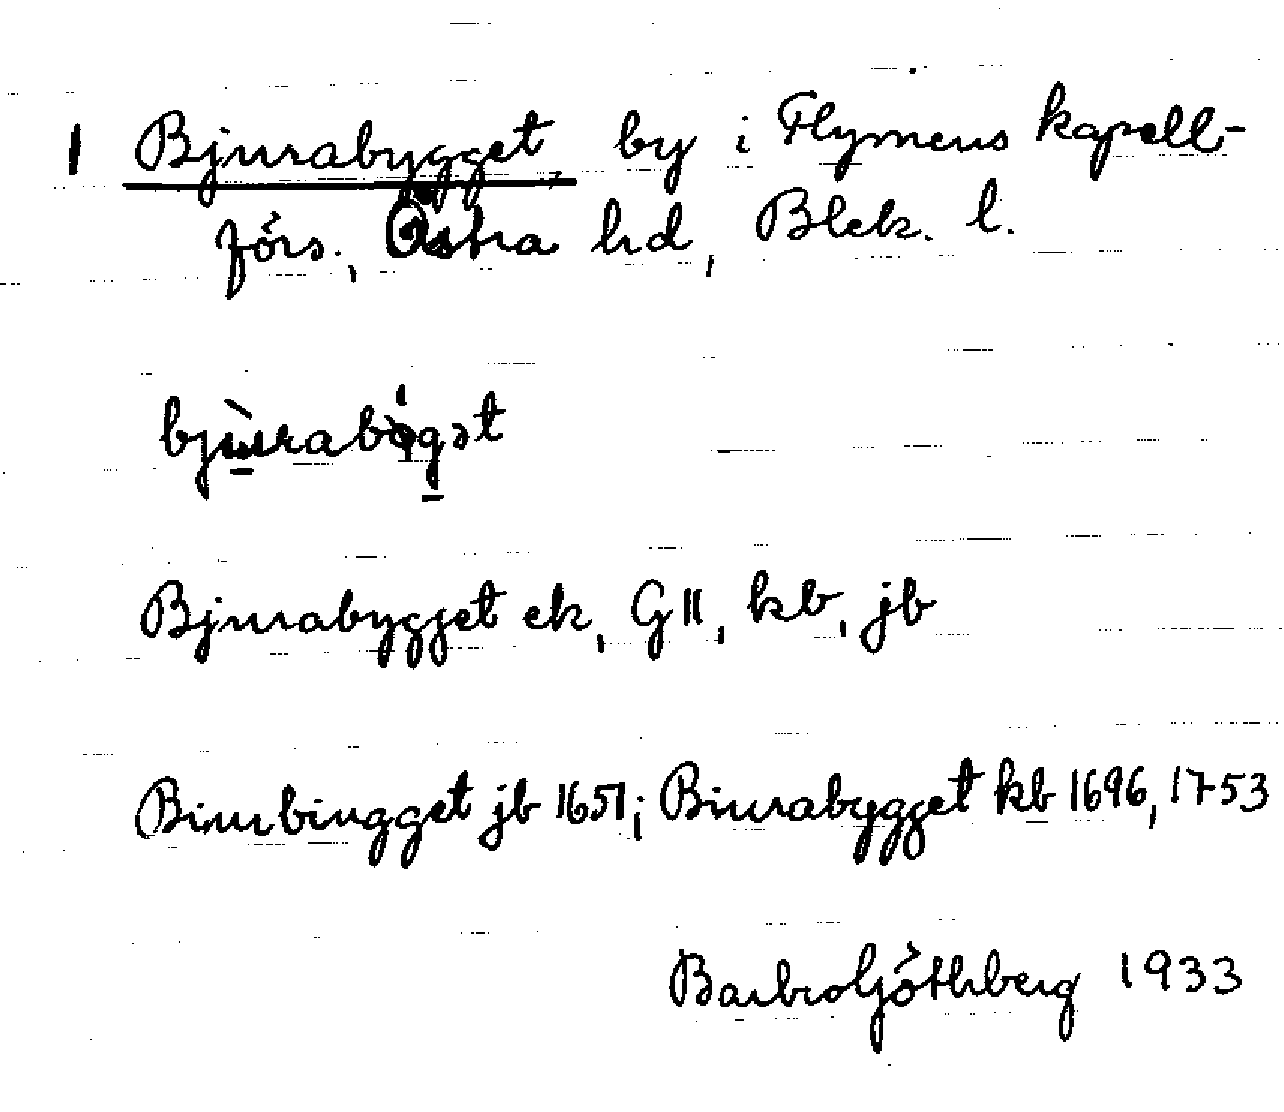 1 Bjurabygget, by i Flymens kapell-
förs., Östra hd, Blek. l.
bjùrabǿgət
Bjurabygget ek, GII, kb, jb
Biurbiugget jb 1651; Biurabygget kb 1696, 1753
Barbro Göthberg 1933